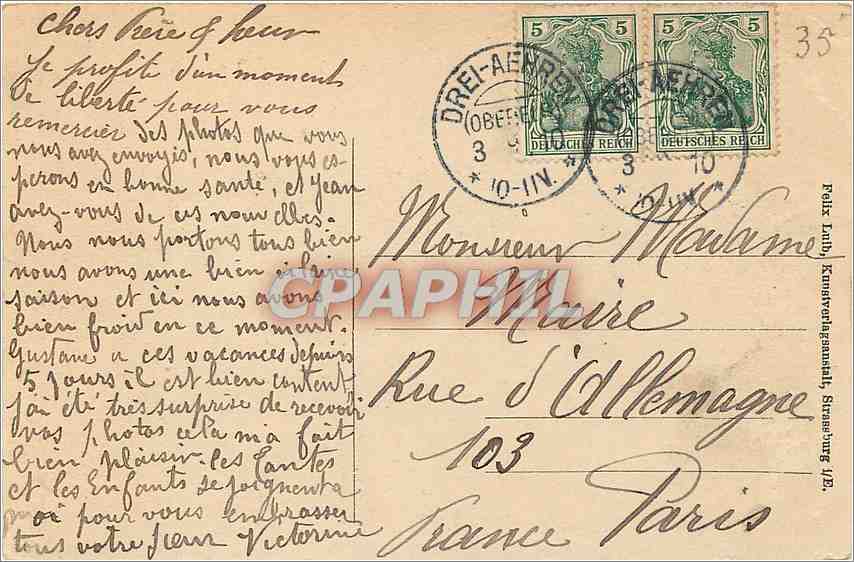 chers frère & soeur
Je profite d'un moment
de liberté pour vous
remercier des photos que vous
nous avez envoyés, nous vous es-
perons en bonne santé, et Jean
avez-vous de ces nouvelles.
Nous nous portons tous bien
nous avons une bien vilaine
saison et ici nous avons
bien froid en ce moment.
Gustave a ces vacances depuis
5 jours il est bien content
j'ai été très surprise de recevoir
vos photos cela m'a fait
bien plaisir. les tantes
et les Enfants se joignent a
moi pour vous embrasser
tous votre soeur Victorine
5 5
DEUTSCHES REICH
5 5
DEUTSCHES REICH
DREI-AEHREN
(OBERE
3 10
* 10-11V. *
DREI-AEHREN
3 10
* 10-11V. *
35
Monsieur Madame
Maire
Rue d'Allemagne
103
Paris
France
Felix Luib, Kunstverlagsanstalt, Strassburg i/E.
CPAPHIL